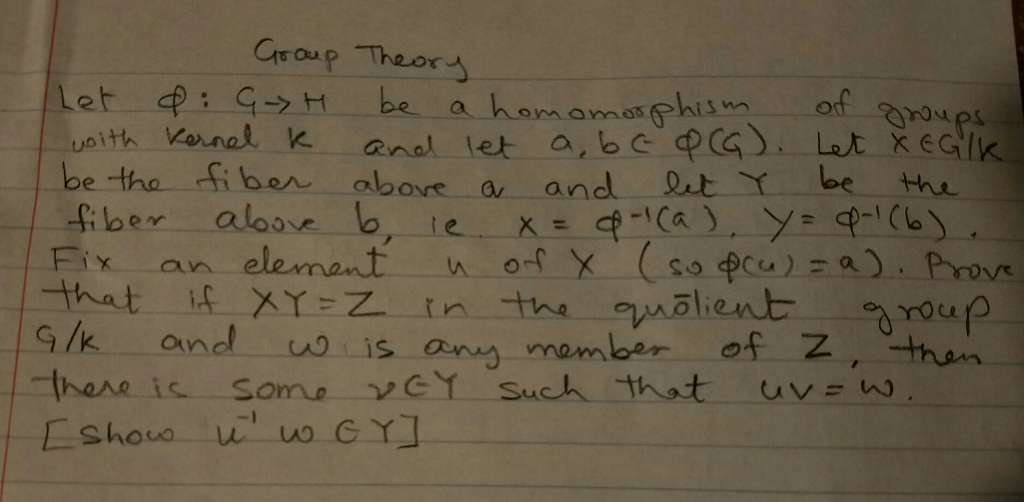 Group Theory
Let φ: G→H be a homomorphism of groups
with Kernel K and let a, b ∈ φ(G). Let X ∈ G/K
be the fiber above a and let Y be the
fiber above b, ie. X = φ⁻¹(a), Y = φ⁻¹(b).
Fix an element u of X (so φ(u) = a). Prove
that if XY = Z in the quotient group
G/K and w is any member of Z, then
there is some v ∈ Y such that uv = w.
[Show u⁻¹ w ∈ Y]